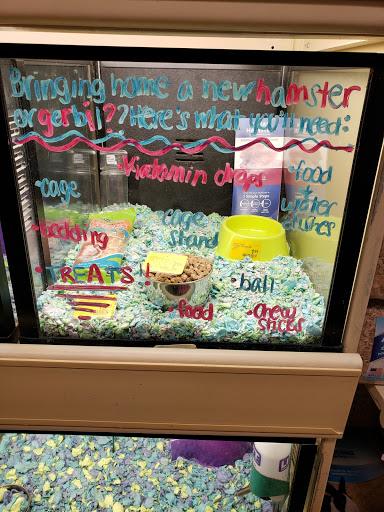 Bringing home a new hamster
or gerbil?? Here's what you'll need:
• Viatamin drops
• food
+
water
dishes
• cage
• cage
stand
• bedding
• TREATS!!
• ball
• food
• chew
sticks